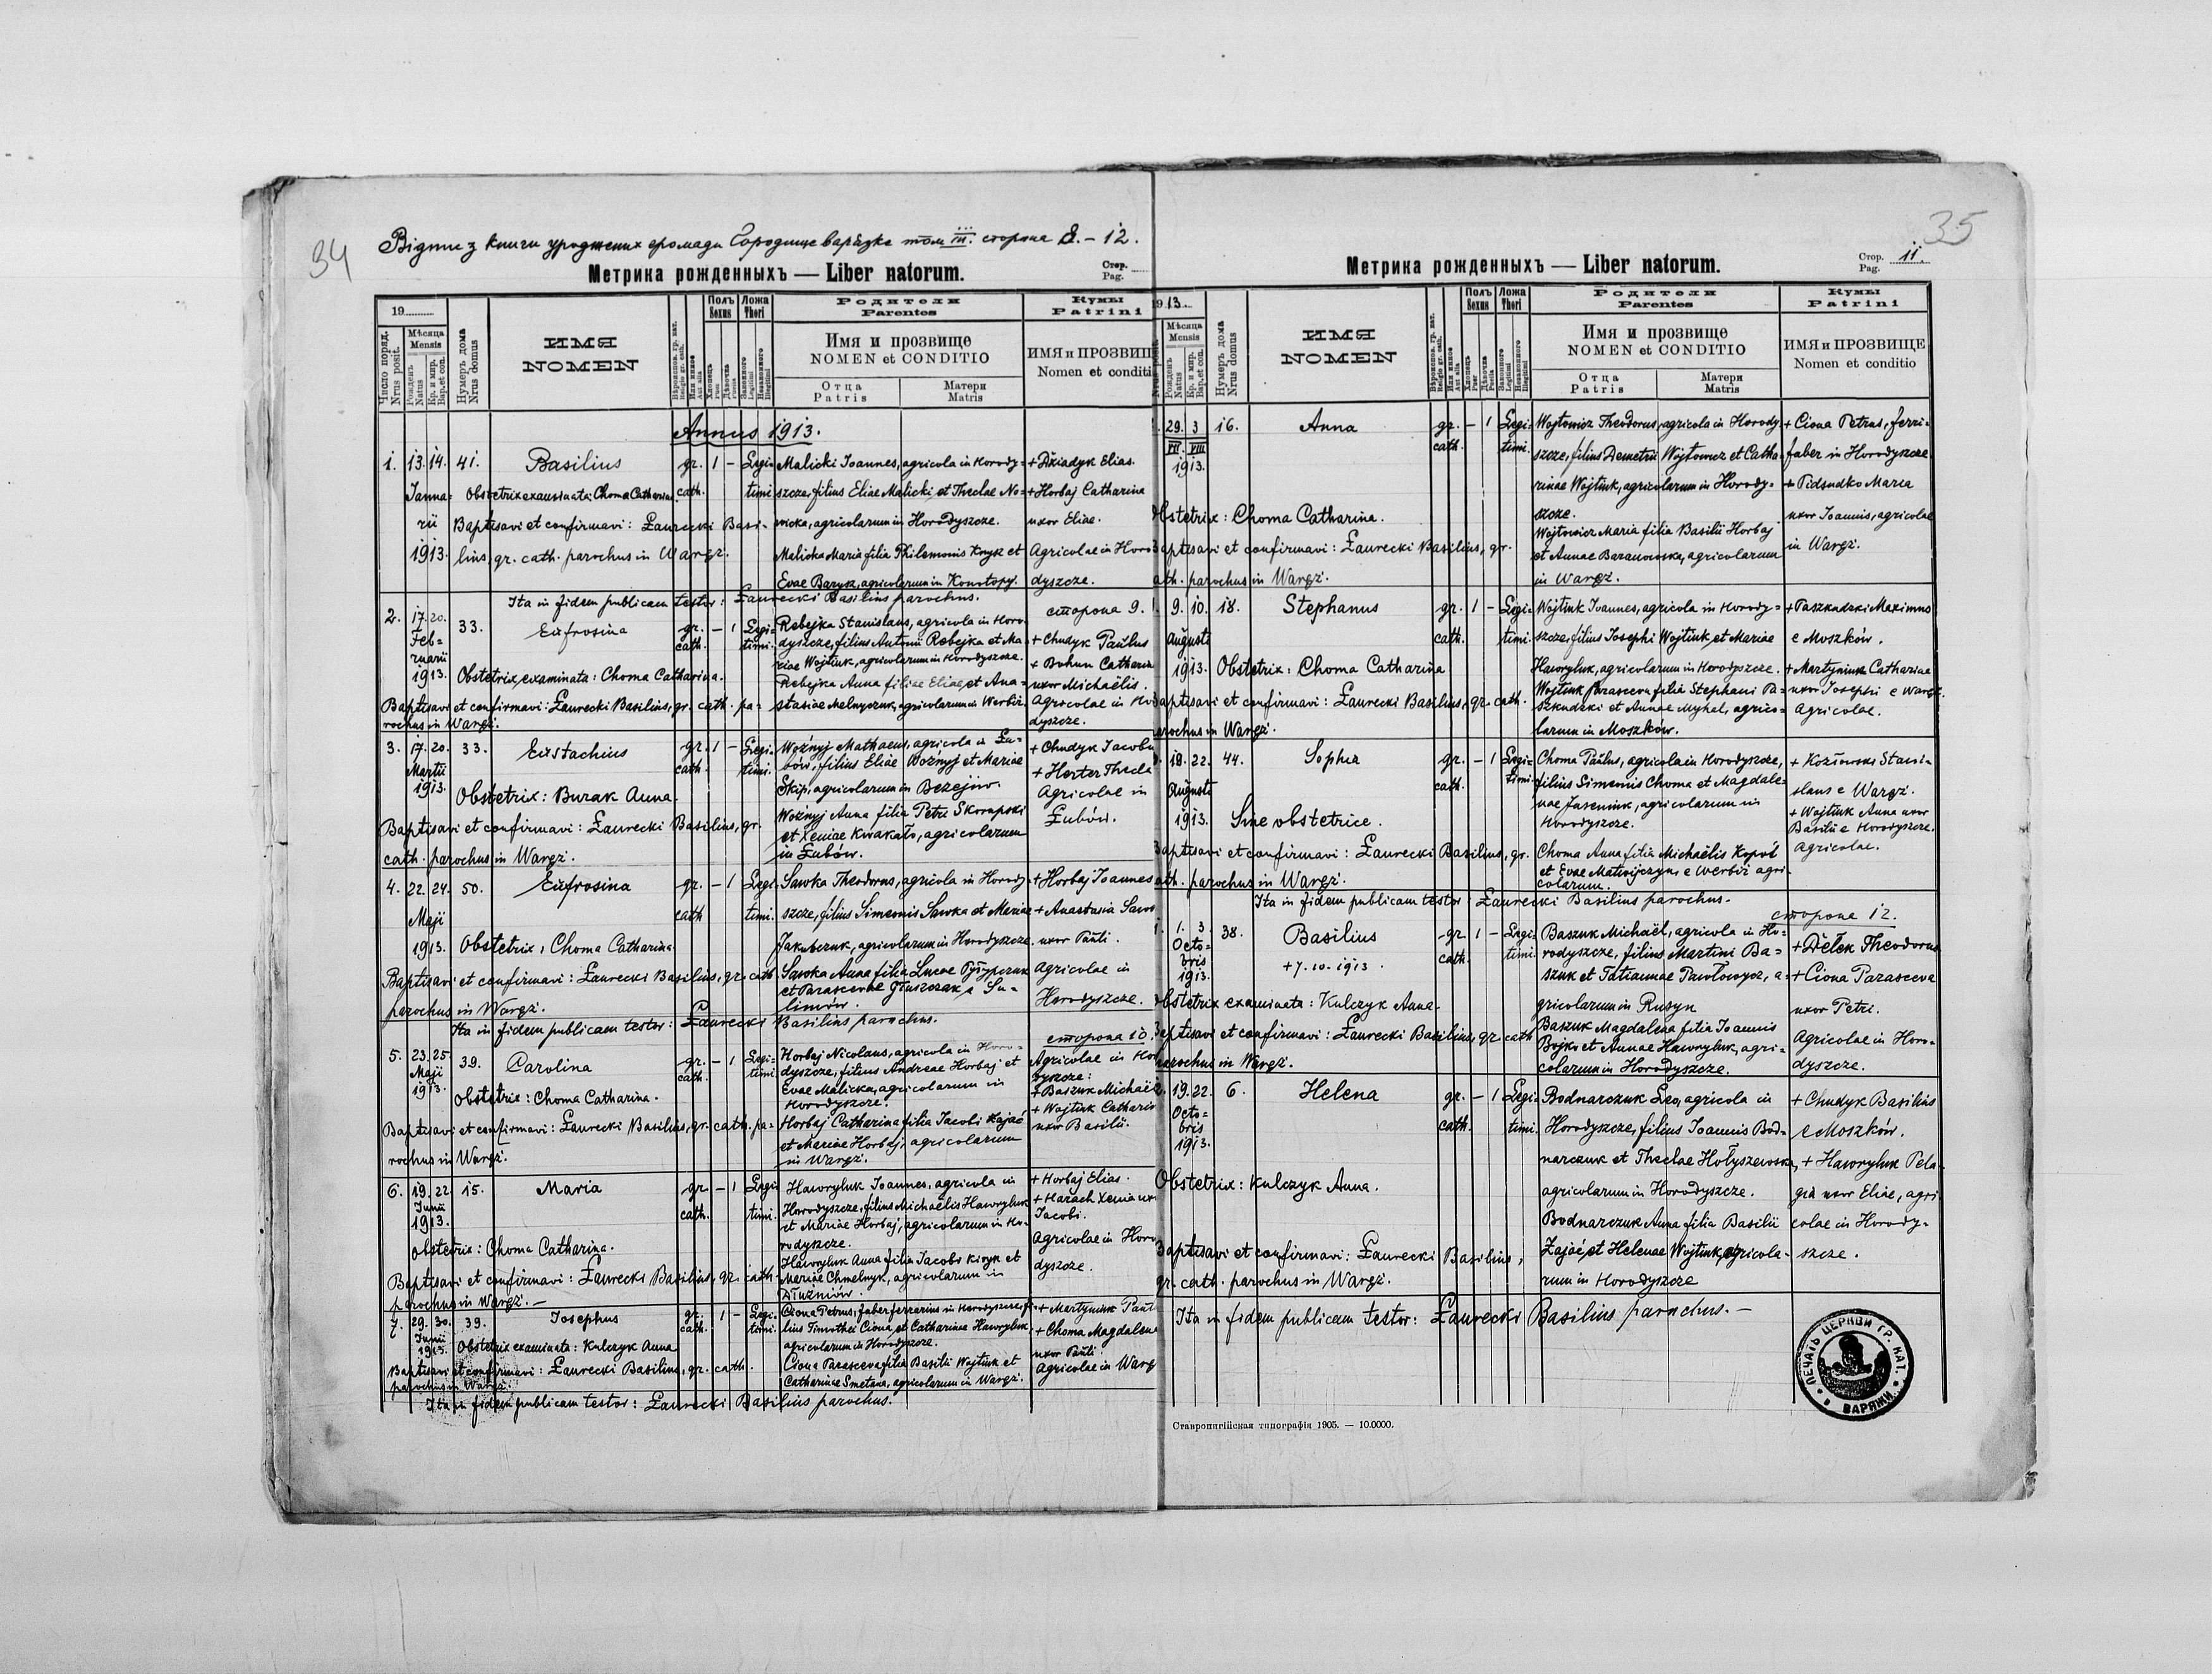 34
Відпис з книги уроджених громади Городище варязке том III. сторона 8. – 12.
Метрика рожденныхъ — Liber natorum.
Стор.
Pag.
19
Число поряд.
Nrus posit.
Мѣсяца
Mensis
Рожденъ
Natus
Кр. и мир.
Bap. et con.
Нумеръ дома
Nrus domus
ИМЯ
NOMEN
Полъ
Sexus
Ложа
Thori
Родители
Parentes
Имя и прозвище
NOMEN et CONDITIO
Отца
Patris
Матери
Matris
Кумы
Patrini
ИМЯ и ПРОЗВИЩ
Nomen et conditi
Annus 1913.
1. 13. 14. 41. Basilius gr. 1 – Legi- Malicki Joannes, agricola in Horody- + Dziadyk Elias.
Janua- Obstetrix examinata: Choma Catharina. cath. timi szcze, filius Eliae Malicki et Theclae No- + Horbaj Catharina
rii Baptisavi et confirmavi: Ławrecki Basi- wicka, agricolarum in Horodyszcze. uxor Eliae.
1913. lius, gr. cath. parochus in Waręż. Malicka Maria filia Philemonis Knysz et Agricolae in Horo
Evae Barysz, agricolarum in Konotopy. dyszcze.
Ita in fidem publicam testor: Ławrecki Basilius parochus.
сторона 9.
2. 17. 20. 33. Eufrosina gr. – 1 Legi- Rebejka Stanislaus, agricola in Horo
Feb- cath. timi. dyszcze, filius Antonii Rebejka et Ma- + Chudyk Paulus
ruarii riae Wojtiuk, agricolarum in Horodyszcze. + Bohun Catharina
1913. Obstetrix examinata: Choma Catharina. Rebejka Anna filiae Eliae et Ana- uxor Michaëlis.
Baptisavi et confirmavi: Ławrecki Basilius, gr. cath. pa- stasiae Melnyczuk, agricolarum in Werbiż. Agricolae in Ho
rochus in Waręż. dyszcze.
3. 17. 20. 33. Eustachius gr. 1 – Legi- Woźnyj Mathaeus, agricola in Łu- + Chudyk Jacobu
Martii cath. timi. bów, filius Eliae Woźnyj et Mariae + Herter Thecla
1913. Obstetrix: Burak Anna. Skip, agricolarum in Bezejów. Agricolae in
Baptisavi et confirmavi: Ławrecki Basilius, gr. Woźnyj Anna filia Petri Skorapski Łubów.
cath. parochus in Waręż. et Xeniae Kwakało, agricolarum
in Łubów.
4. 22. 24. 50. Eufrosina gr. – 1 Legi- Sawka Theodorus, agricola in Horody- + Horbaj Joannes
Maji cath timi. szcze, filius Simeonis Sawka et Mariae + Anastasia Saw
1913. Obstetrix: Choma Catharina. Jakubczuk, agricolarum in Horodyszcze. uxor Pauli.
Baptisavi et confirmavi: Ławrecki Basilius, gr. cath. Sawka Anna filia Lucae Agricolae in
parochus in Waręż. et Parascevae Głuszczak e Su- Horodyszcze.
limów.
Ita in fidem publicam testor: Ławrecki Basilius parochus.
сторона 10.
5. 23. 25 39. Carolina gr. – 1 Legi- Horbaj Nicolaus, agricola in Horo- Agricolae in Ho
Maji cath. timi. dyszcze, filius Andreae Horbaj et dyszcze:
1913. Obstetrix: Choma Catharina. Evae Malicka, agricolarum in + Baszuk Michaël
Horodyszcze. + Wojtiuk Catharin
Baptisavi et confirmavi: Ławrecki Basilius, gr. cath. pa- Horbaj Catharina filia Jacobi Zając uxor Basilii.
rochus in Waręż. et Mariae Horbaj, agricolarum
in Waręż.
6. 19. 22 15. Maria gr. – 1 Legi- Hawryluk Joannes, agricola in + Horbaj Elias.
Junii cath. timi. Horodyszcze, filius Michaëlis Hawryluk + Harach Xenia ux
1913. et Mariae Horbaj, agricolarum in Ho- Jacobi.
Obstetrix: Choma Catharina. rodyszcze. Agricolae in Horo
Baptisavi et confirmavi: Ławrecki Basilius, gr. cath. Hawryluk Anna filia Jacobi Kiryk et dyszcze.
parochus in Waręż. – Mariae Chmelnyk, agricolarum in
Dłużniów.
7. 29. 30. 39. Josephus gr. 1 – Legi- Ciona Petrus, faber ferrarius in Horodyszcze, fi- + Martyniuk Pauł
Junii cath. timi. lius Timothei Ciona et Catharinae Hawryluk, + Choma Magdalena
1913. Obstetrix examinata: Kulczyk Anna agricolarum in Horodyszcze. uxor Pauli.
Baptisavi et confirmavi: Ławrecki Basilius, gr. cath. Ciona Parasceva filia Basilii Wojtiuk et Agricolae in Waręż
parochus in Waręż. Catharinae Smetana, agricolarum in Waręż.
Ita in fidem publicam testor: Ławrecki Basilius parochus.
35
Метрика рожденныхъ — Liber natorum.
Стор.
Pag. 11.
1913.
Мѣсяца
Mensis
Рожденъ
Natus
Кр. и мир.
Bap. et con.
Нумеръ дома
Nrus domus
ИМЯ
NOMEN
Полъ
Sexus
Ложа
Thori
Родители
Parentes
Имя и прозвище
NOMEN et CONDITIO
Отца
Patris
Матери
Matris
Кумы
Patrini
ИМЯ и ПРОЗВИЩЕ
Nomen et conditio
29. 3 16. Anna gr. – 1 Legi- Wojtowicz Theodorus, agricola in Horody- + Ciona Petrus, ferri-
VII. VIII cath. timi. szcze, filius Demetrii Wojtowicz et Catha- faber in Horodyszcze.
1913. rinae Wojtiuk, agricolarum in Horody- + Pidsudko Maria
szcze. uxor Joannis, agricolae
Obstetrix: Choma Catharina. Wojtowicz Maria filia Basilii Horbaj in Waręż.
Baptisavi et confirmavi: Ławrecki Basilius, gr. et Annae Baranowska, agricolarum
ath. parochus in Waręż. in Waręż.
9. 10. 18. Stephanus gr. 1 – Legi- Wojtiuk Joannes, agricola in Horody- + Paszkudzki Maximus
Augusti cath. timi. szcze, filius Josephi Wojtiuk et Mariae e Moszków.
1913. Obstetrix: Choma Catharina Hawryluk, agricolarum in Horodyszcze. + Martyniuk Catharina
Baptisavi et confirmavi: Ławrecki Basilius, gr. cath. Wojtiuk Parasceva filia Stephani Pa- uxor Josephi e Waręż.
parochus in Waręż. szkudzki et Annae Myhal, agrico- Agricolae.
larum in Moszków.
18. 22. 44. Sophia gr. – 1 Legi- Choma Paulus, agricola in Horodyszcze, + Kozłowski Stani-
Augusti cath. timi. filius Simeonis Choma et Magdale- slaus e Waręż.
1913. Sine obstetrice. nae Jaseniuk, agricolarum in + Wojtiuk Anna uxor
Horodyszcze. Basilii e Horodyszcze.
Baptisavi et confirmavi: Ławrecki Basilius, gr. Choma Anna filia Michaëlis Kopoś Agricolae.
ath. parochus in Waręż. et Evae Matwijczyn, e Werbiż agri-
colarum.
Ita in fidem publicam testor: Ławrecki Basilius parochus.
сторона 12.
1. 3. 38. Basilius gr. 1 – Legi- Baszuk Michaël, agricola in Ho- + Dełek Theodorus
Octo- + 7. 10. 1913. cath. timi. rodyszcze, filius Martini Ba- + Ciona Parasceva
bris szuk et Tatiannae Pawłowycz, a- uxor Petri.
1913. gricolarum in Rusyn Agricolae in Horo-
Obstetrix examinata: Kulczyk Anna. Baszuk Magdalena filia Joannis dyszcze.
Baptisavi et confirmavi: Ławrecki Basilius, gr. cath Bojko et Annae Hawryluk, agri-
parochus in Waręż. colarum in Horodyszcze.
19. 22. 6. Helena gr. – 1 Legi- Bodnarczuk Leo, agricola in + Chudyk Basilius
Octo- cath. timi. Horodyszcze, filius Joannis Bod- e Moszków.
bris narczuk et Theclae Hołyszewska, + Hawryluk Pela-
1913. agricolarum in Horodyszcze. gia uxor Eliae, agri-
Obstetrix: Kulczyk Anna. Bodnarczuk Anna filia Basilii colae in Horody-
Baptisavi et confirmavi: Ławrecki Basilius, Zając et Helenae Wojtiuk, agricola- szcze.
gr. cath. parochus in Waręż. rum in Horodyszcze
Ita in fidem publicam testor: Ławrecki Basilius parochus. –
ПЕЧАТЬ ЦЕРКВИ ГР. КАТ. ВАРЯЖИ
Ставропигійская типографія 1905. — 10.0000.